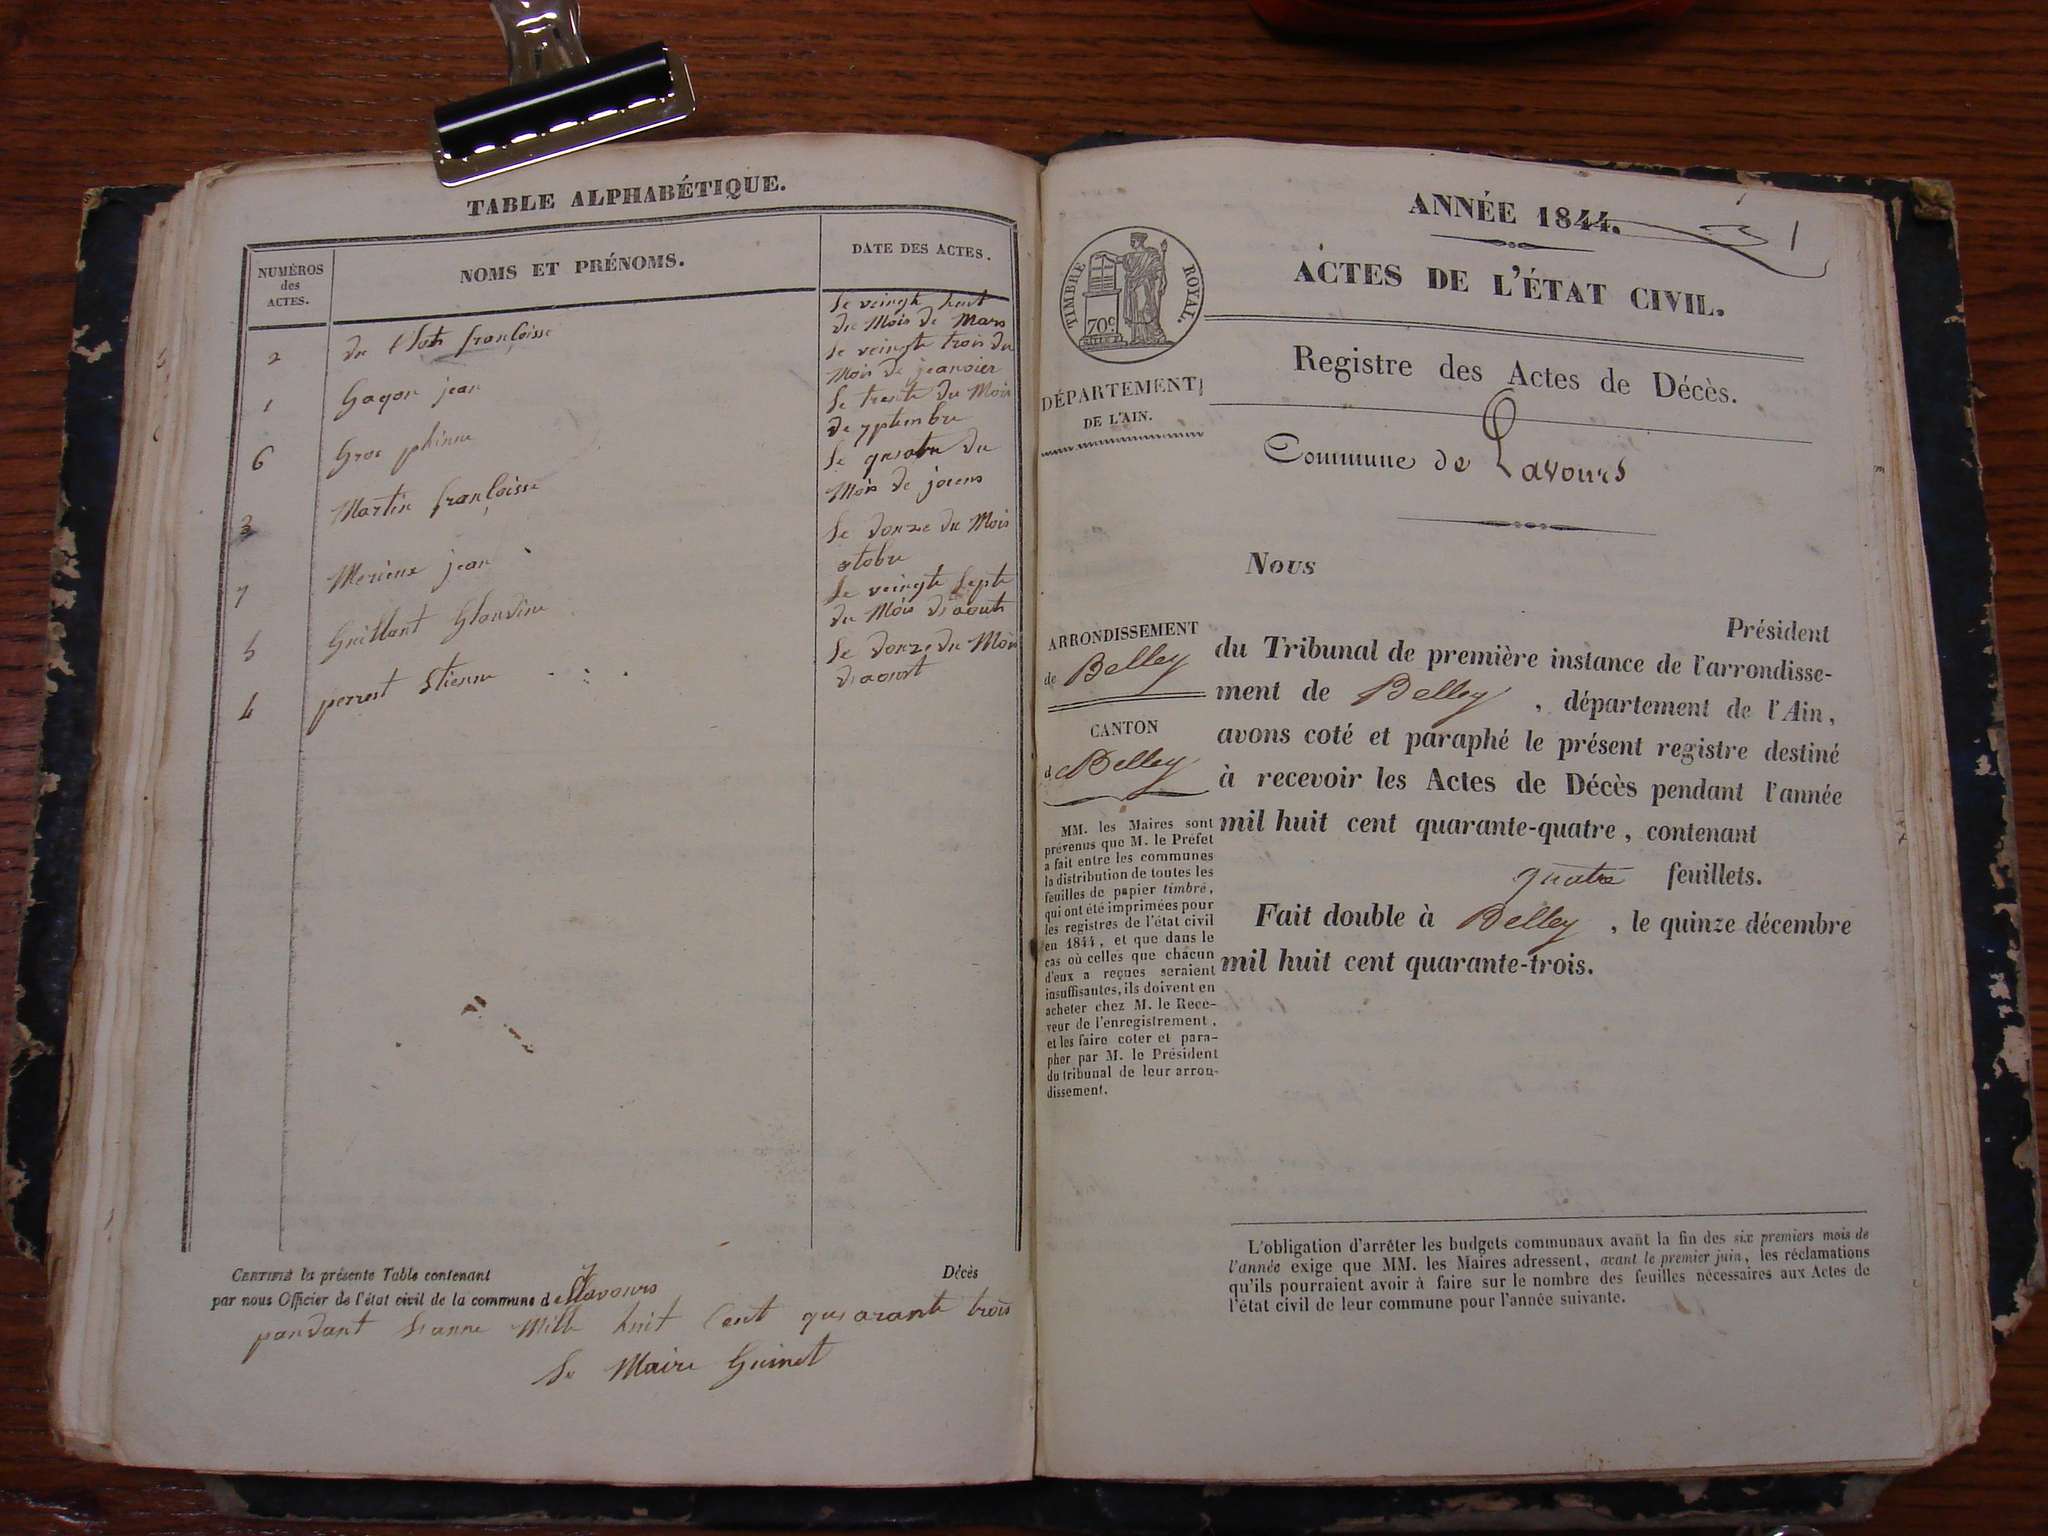 TABLE ALPHABÉTIQUE.
NUMÉROS des ACTES.
NOMS ET PRÉNOMS.
DATE DES ACTES.
2 françoisse le veingt huit
du Mois de Mars
1 Gagon jean le veingte trois du
Mois de jeanvier
6 Gros phinne le trente du Mois
de 7ptembre
3 Martin françoisse le quatre du
Mois de
7 Merieux jean le douze du Mois
otobre
5 Guillant Glaudine le veingte septe
du Mois d'aout
4 perret Etienne le douze du Mois
d'aoust
CERTIFIÉ la présente Table contenant 7 Décès
par nous Officier de l'état civil de la commune de Lavours
pandant l'anne Mille huit Cent quarante trois
Le Maire Guinet
ANNÉE 1844.
1
ACTES DE L'ÉTAT CIVIL.
TIMBRE ROYAL.
70c
Registre des Actes de Décès.
DÉPARTEMENT
DE L'AIN.
Commune de Lavours
ARRONDISSEMENT
de Belley
CANTON
de Belley
MM. les Maires sont
prévenus que M. le Préfet
a fait entre les communes
la distribution de toutes les
feuilles de papier timbré,
qui ont été imprimées pour
les registres de l'état civil
en 1844, et que dans le
cas où celles que chacun
d'eux a reçues seraient
insuffisantes, ils doivent en
acheter chez M. le Rece-
veur de l'enregistrement,
et les faire coter et para-
pher par M. le Président
du tribunal de leur arron-
dissement.
Nous
Président
du Tribunal de première instance de l'arrondisse-
ment de Belley, département de l'Ain,
avons coté et paraphé le présent registre destiné
à recevoir les Actes de Décès pendant l'année
mil huit cent quarante-quatre, contenant
quatre feuillets.
Fait double à Belley, le quinze décembre
mil huit cent quarante-trois.
L'obligation d'arrêter les budgets communaux avant la fin des six premiers mois de
l'année exige que MM. les Maires adressent, avant le premier juin, les réclamations
qu'ils pourraient avoir à faire sur le nombre des feuilles nécessaires aux Actes de
l'état civil de leur commune pour l'année suivante.